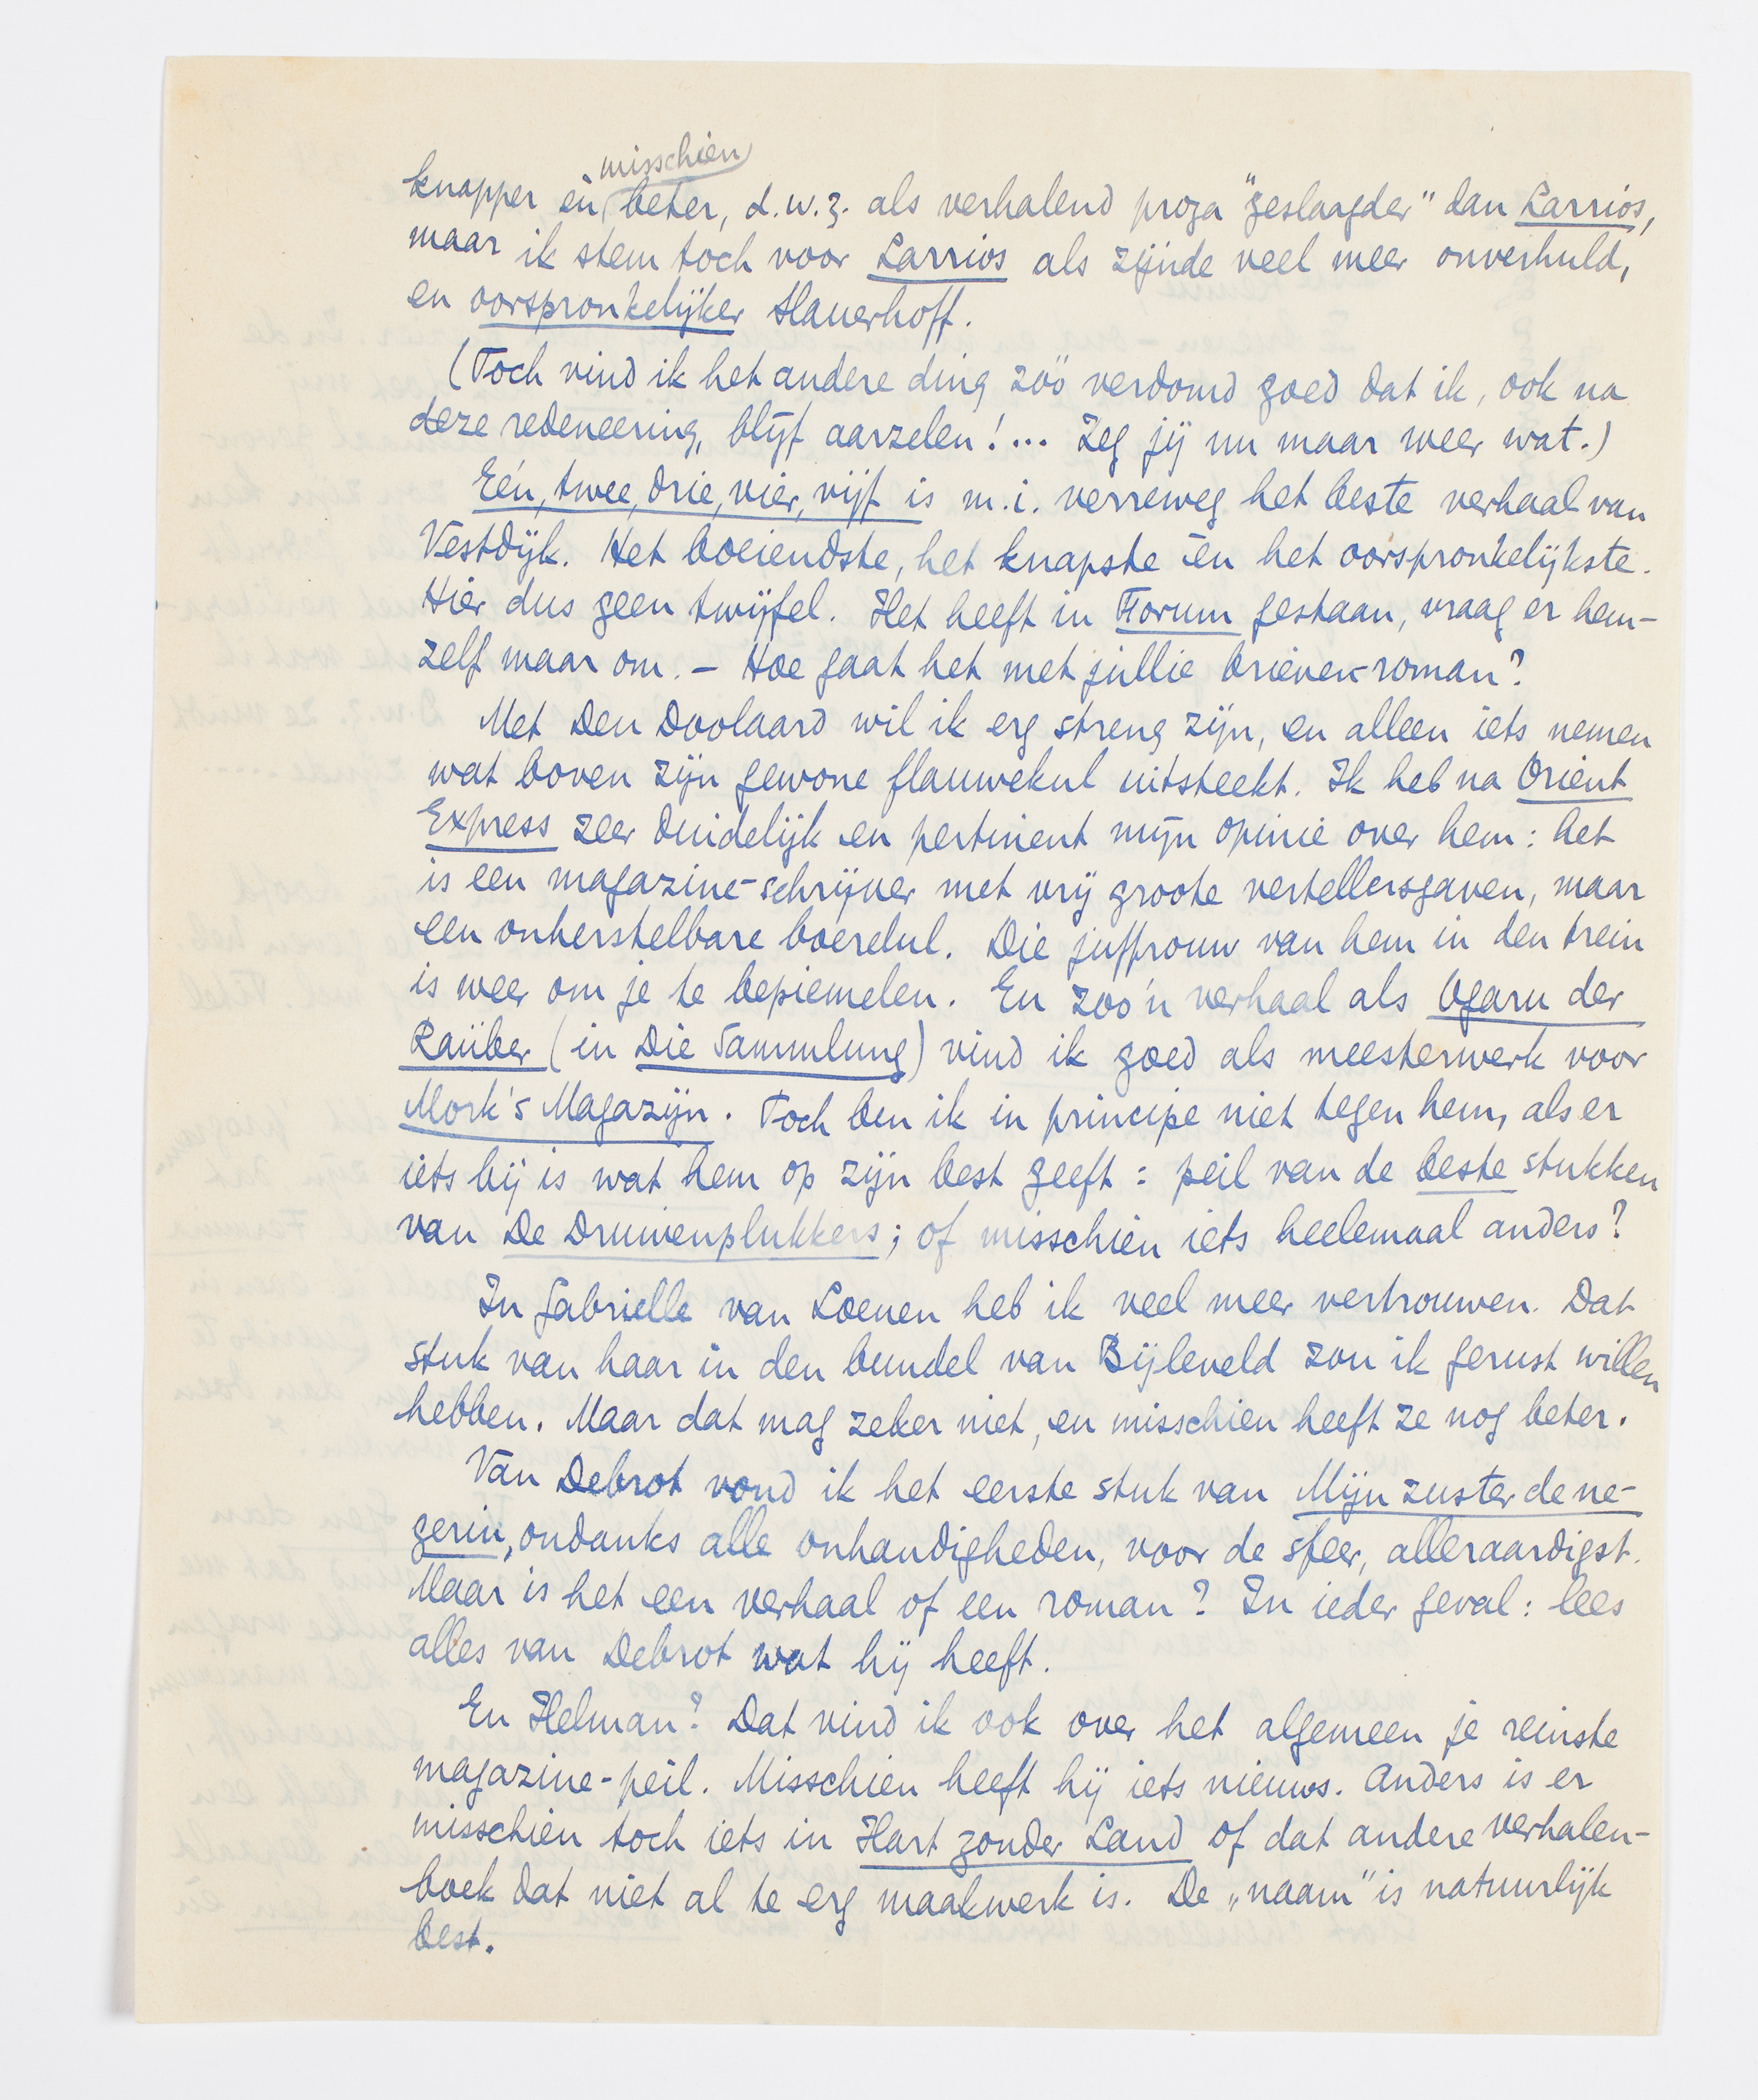 knapper èn misschien beter, d.w.z. als verhalend proza "geslaagder" dan Larrios,
maar ik stem toch voor Larrios als zijnde veel meer onverhuld,
en oorspronkelijker Slauerhoff.
(Toch vind ik het andere ding zóó verdomd goed dat ik, ook na
deze redeneering, blijf aarzelen!... Zeg jij nu maar weer wat.)
Eén, twee, drie, vier, vijf is m.i. verreweg het beste verhaal van
Vestdijk. Het boeiendste, het knapste èn het oorspronkelijkste.
Hier dus geen twijfel. Het heeft in Forum gestaan, vraag er hem-
zelf maar om. – Hoe gaat het met jullie brieven-roman?
Met Den Doolaard wil ik erg streng zijn, en alleen iets nemen
wat boven zijn gewone flauwekul uitsteekt. Ik heb na Orient
Express zeer duidelijk en pertinent mijn opinie over hem: het
is een magazine-schrijver met vrij groote vertellersgaven, maar
een onherstelbare boerelul. Die juffrouw van hem in den trein
is weer om je te bepiemelen. En zoo'n verhaal als Ogaru der
Raüber (in Die Sammlung) vind ik goed als meesterwerk voor
Mork's Magazijn. Toch ben ik in principe niet tegen hem, als er
iets bij is wat hem op zijn best geeft: peil van de beste stukken
van De Druivenplukkers; of misschien iets heelemaal anders?
In Gabrielle van Loenen heb ik veel meer vertrouwen. Dat
stuk van haar in den bundel van Bijleveld zou ik gerust willen
hebben. Maar dat mag zeker niet, en misschien heeft ze nog beter.
Van Debrot vond ik het eerste stuk van Mijn zuster de ne-
gerin, ondanks alle onhandigheden, voor de sfeer, alleraardigst.
Maar is het een verhaal of een roman? In ieder geval: lees
alles van Debrot wat hij heeft.
En Helman? Dat vind ik ook over het algemeen je reinste
magazine-peil. Misschien heeft hij iets nieuws. Anders is er
misschien toch iets in Hart zonder Land of dat andere verhalen-
boek dat niet al te erg maakwerk is. De „naam" is natuurlijk
best.